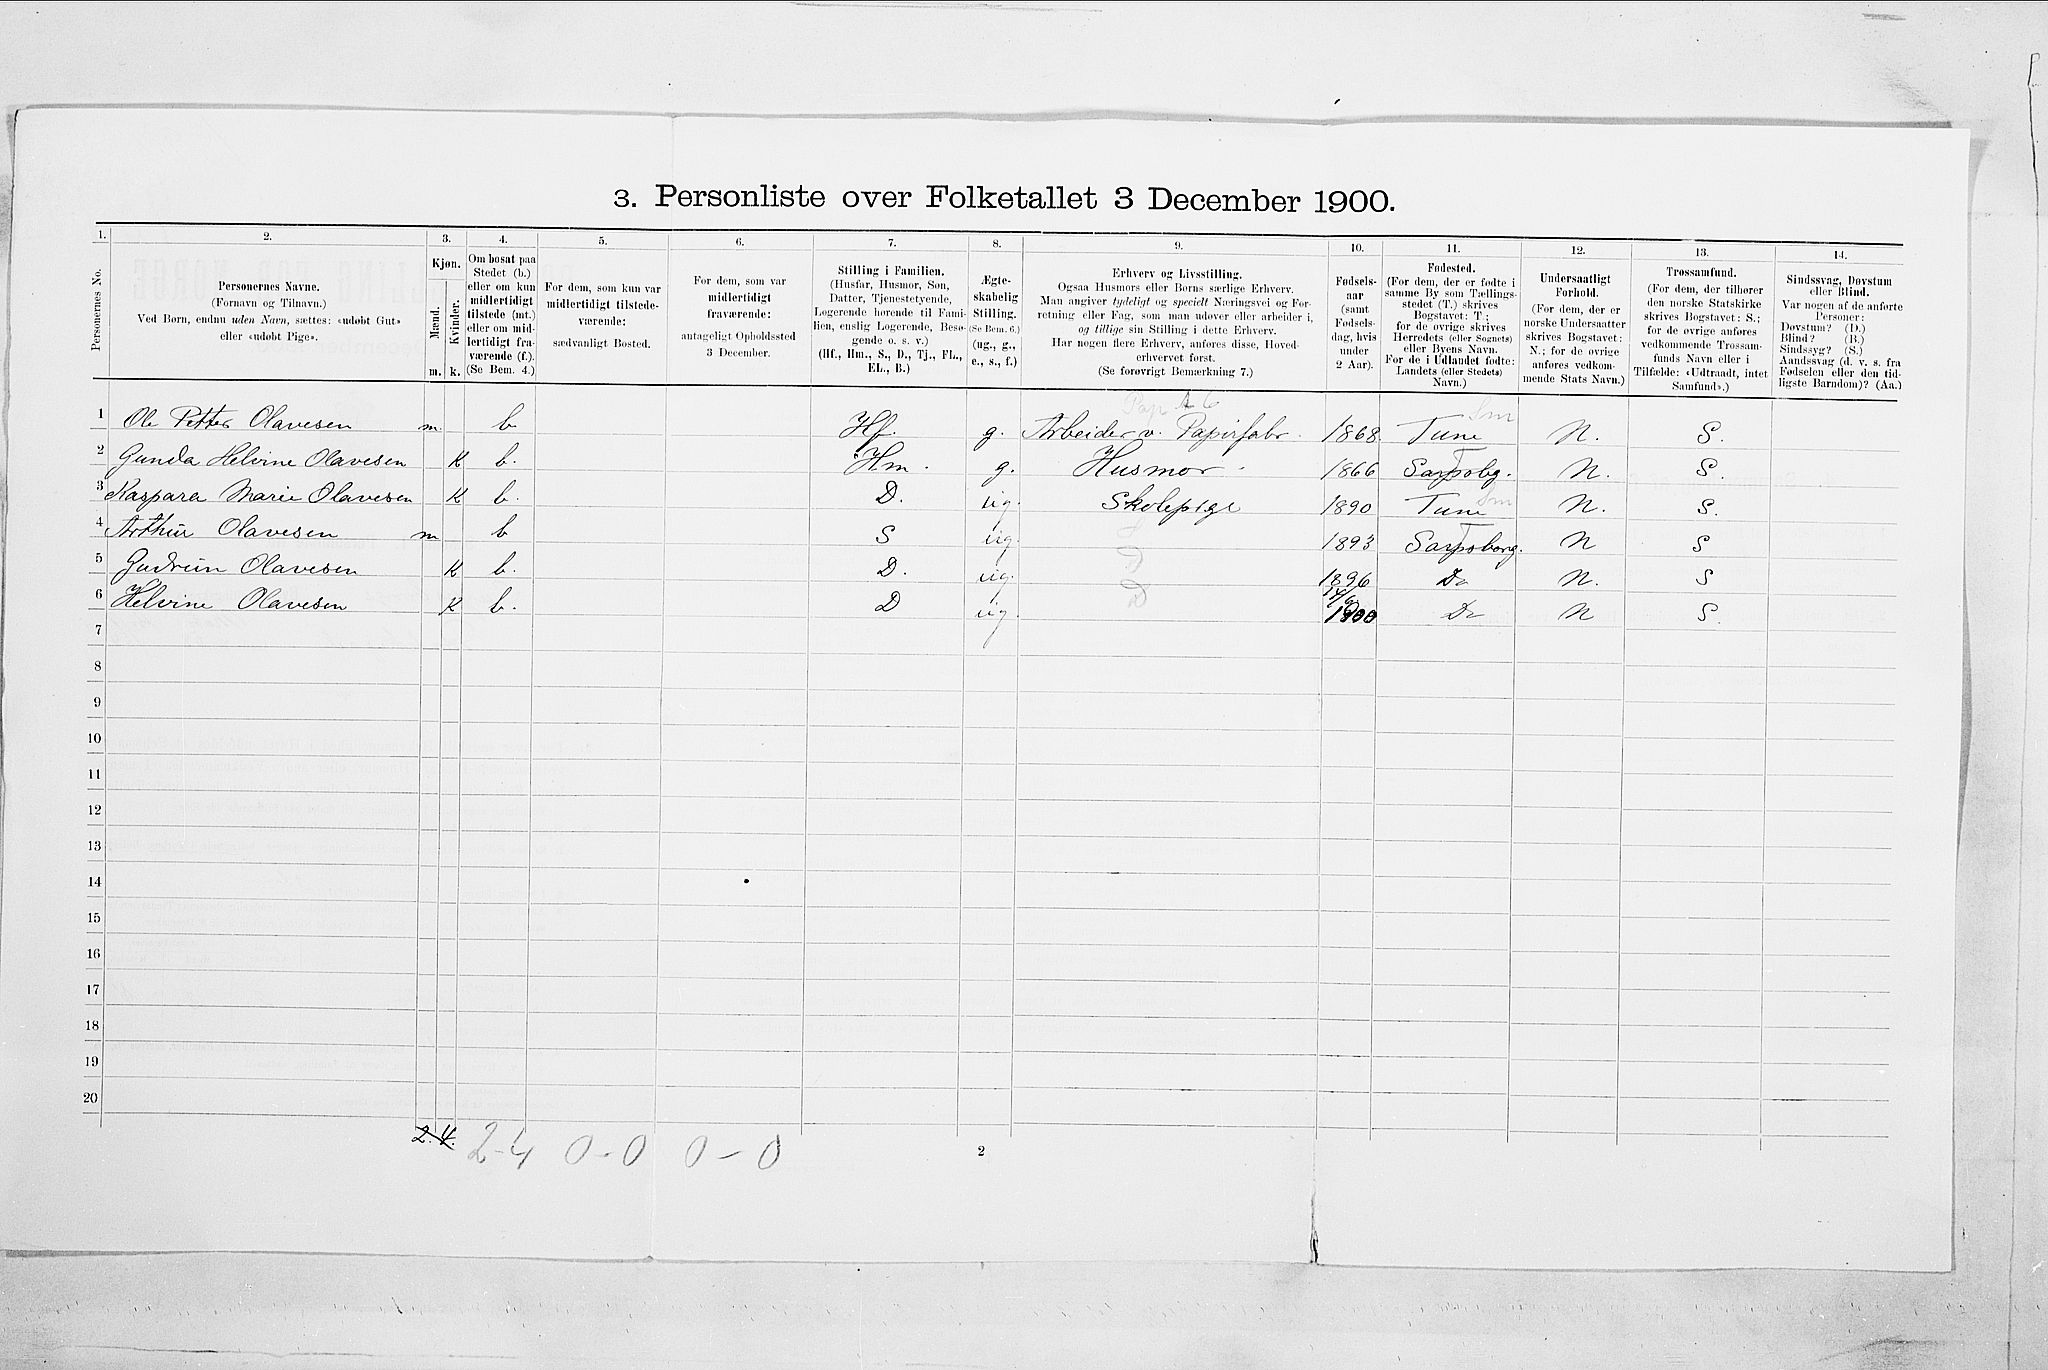 3. Personliste over Folketallet 3 December 1900.
1. 2. 3. 4. 5. 6. 7. 8. 9. 10. 11. 12. 13. 14.
Personernes No.
Personernes Navne.
(Fornavn og Tilnavn.)
Ved Børn, endnu uden Navn, sættes: «udøbt Gut»
eller «udøbt Pige».
Kjøn.
Mænd.
Kvinder.
m. k.
Om bosat paa
Stedet (b.)
eller om kun
midlertidigt
tilstede (mt.)
eller om mid-
lertidigt fra-
værende (f.).
(Se Bem. 4.)
For dem, som kun var
midlertidigt tilstede-
værende:
sædvanligt Bosted.
For dem, som var
midlertidigt
fraværende:
antageligt Opholdssted
3 December.
Stilling i Familien.
(Husfar, Husmor, Søn,
Datter, Tjenestetyende,
Logerende hørende til Fami-
lien, enslig Logerende, Besø-
gende o. s. v.)
(Hf., Hm., S., D., Tj., FL.,
EL., B.)
Ægte-
skabelig
Stilling.
(Se Bem. 6.)
(ug., g.,
e., s., f.)
Erhverv og Livsstilling.
Ogsaa Husmors eller Børns særlige Erhverv.
Man angiver tydeligt og specielt Næringsvei og For-
retning eller Fag, som man udøver eller arbeider i,
og tillige sin Stilling i dette Erhverv.
Har nogen flere Erhverv, anføres disse, Hoved-
erhvervet først.
(Se forøvrigt Bemærkning 7.)
Fødsels-
aar
(samt
Fødsels-
dag, hvis
under
2 Aar).
Fødested.
(For dem, der er fødte i
samme By som Tællings-
stedet (T.) skrives
Bogstavet: T.;
for de øvrige skrives
Herredets (eller Sognets)
eller Byens Navn.
For de i Udlandet fødte:
Landets (eller Stedets)
Navn.)
Undersaatligt
Forhold.
(For dem, der er
norske Undersaatter
skrives Bogstavet:
N.; for de øvrige
anføres vedkom-
mende Stats Navn.)
Trossamfund.
(For dem, der tilhører
den norske Statskirke
skrives Bogstavet: S.;
for de øvrige anføres
vedkommende Trossam-
funds Navn eller i
Tilfælde: «Udtraadt, intet
Samfund».)
Sindssvag, Døvstum
eller Blind.
Var nogen af de anførte
Personer:
Døvstum? (D.)
Blind? (B.)
Sindssyg? (S.)
Aandssvag (d. v. s. fra
Fødselen eller den tid-
ligste Barndom)? (Aa.)
1 Ole Petter Olavesen m. b Hf. g. Arbeider v. Papirfabr. 1868. Tune N. S.
2 Gunda Helvine Olavesen K b. Hm. g. Husmor. 1866 Sarpsbg. N. S.
3 Kaspara Marie Olavesen K b. D. ug. Skolepige 1890 Tune N. S.
4 Arthur Olavesen m b S ug. 1893 Sarpsborg. N S
5 Gudrun Olavesen K b. D. ug. 1896 Do N. S
6 Helvine Olavesen K b. D ug. 1900 Do N S.
7
8
9
10
11
12
13
14
15
16
17
18
19
20
2. 4. 2-4 0-0 0-0
2